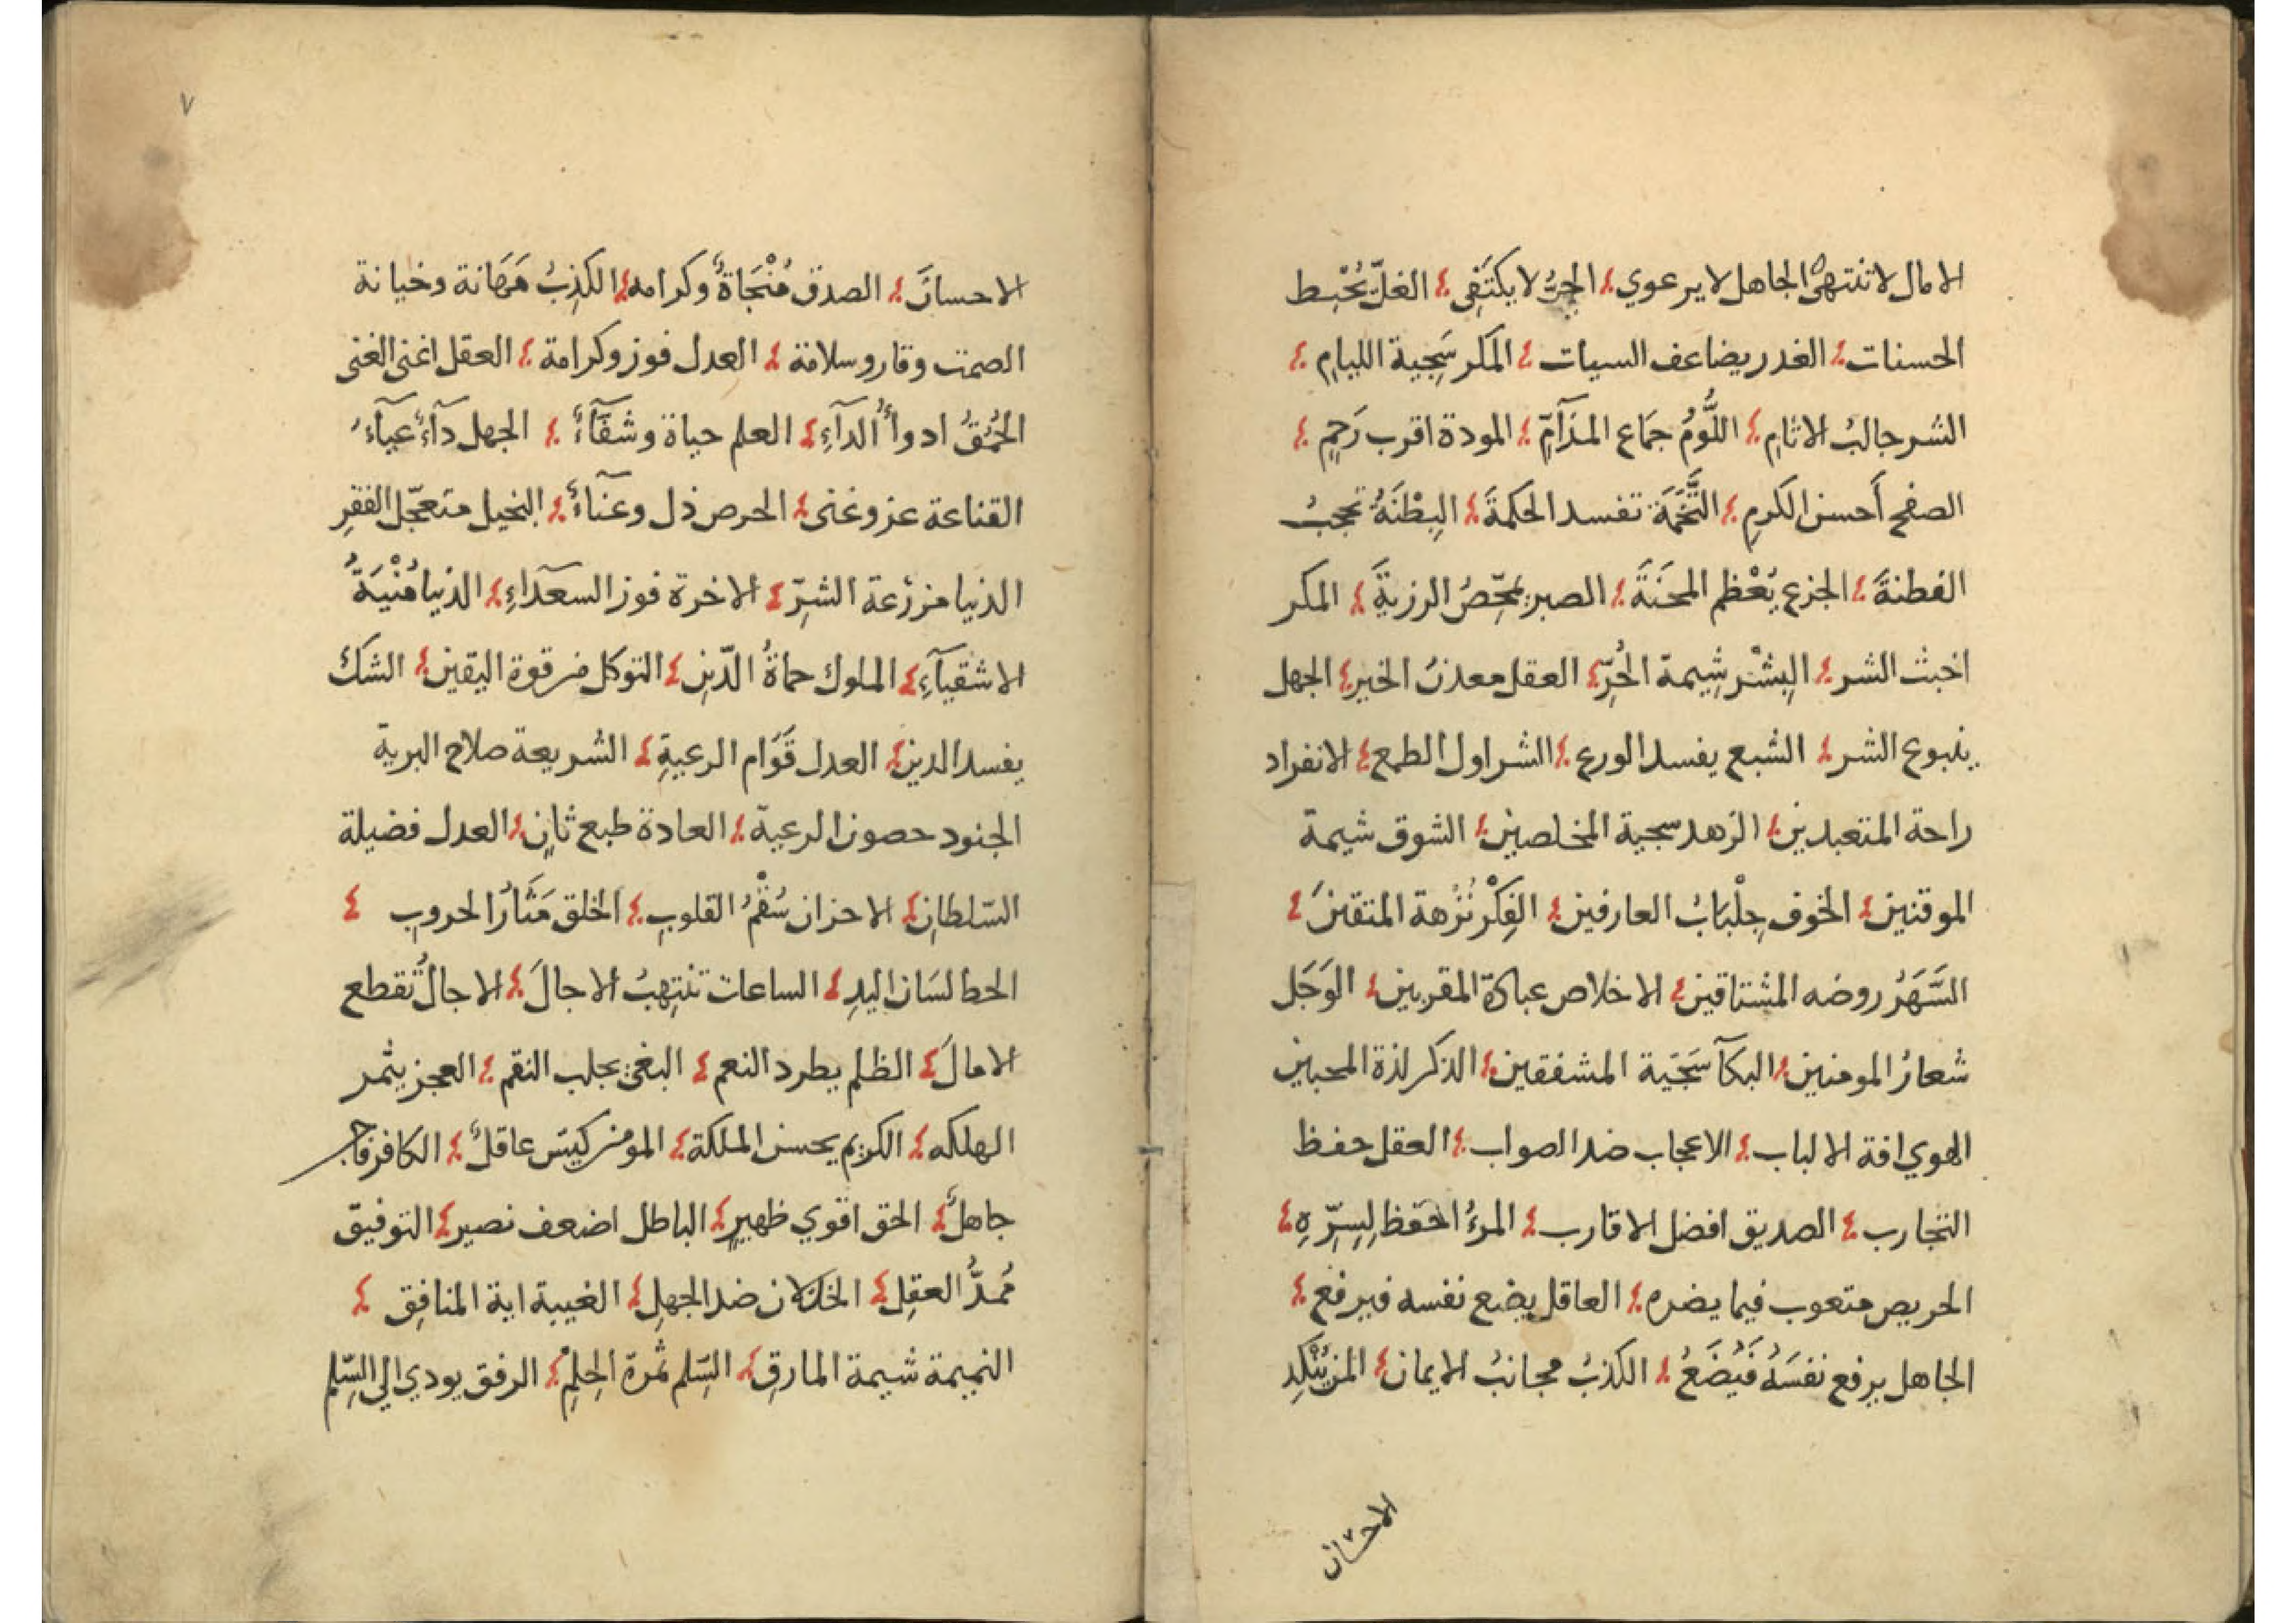 الامال لا تنتهي الجاهل لا يرعوي الحر لا يكتفى الغلّ يُحْبِط
الحسنات الغدر يضاعف السيات المكر سَجِية الليامِ
الشر جالبُ الاثامِ اللُّومُ جمَاع المذآمِّ المودة اقرب رَحِمٍ
الصفح أحسن الكرمِ التُّخَمَة تفسد الحكمةَ البِطْنَةُ تحجبُ
الفطنةَ الجزع يُعْظم المحَنَةَ الصبر يمحّصُ الرزيةَ المكر
اخبث الشر البِشْر شِيمة الحُرِّ العقل معدنُ الخير الجهل
ينبوع الشر الشبع يفسد الورع الشر اول الطمع الانفراد
راحة المتعبدين الزهد سجية المخلصين الشوق شيمة
الموقنين الخوف جِلْبَابُ العارفين الفِكْر نُزْهة المتقينَ
السَّهَرُ روضه المشتاقين الاخلاص عبادة المقربين الوَجَل
شعارُ المومنين البكآ سَجيَة المشفقين الذكر لذة المحبين
الهوي افة الالباب الاعجاب ضد الصواب العقل حفظ
التجارب الصديق افضل الاقارب المرءُ احفظ لِسِرِّهِ
الحريص متعوب فيما يضره العاقل يضع نفسه فيرفع
الجاهل يرفع نفسَهُ فَيُضَعُ الكذبُ مجانبُ الايمان المن يُنْكِد
الاحسان
٧
الاحسانَ الصدق مُنْجَاةٌ وكرامه الكذِبُ مَهَانة وخيانة
الصمت وقار وسلامة العدل فوز وكرامة العقل اغنى الغنى
الحُمْقُ ادوأُ الدآءِ العلم حياة وشفآءٌ الجهل دآءٌ عيآءٌ
القناعة عز وغنى الحرص ذل وعنآءٌ البخيل متعجّل الفقرِ
الدنيا مزرعة الشرِّ الاخرة فوز السعدآءِ الدنيا مُنْيَةُ
الاشقيآءِ الملوك حماةُ الدّينِ التوكل من قوة اليقين الشك
يفسد الدين العدل قَوَام الرعيةِ الشريعة صلاح البرية
الجنود حصون الرعية العادة طبع ثانٍ العدل فضيلة
السّلطانِ الاحزان سُقْمُ القلوبِ الخلق مَثَارُ الحروبِ
الخط لسَان اليدِ الساعات تنتهِبُ الاجالَ الاجالُ تُقطع
الامالَ الظلم يطرد النعم البغى يجلب النقم العجز يثمر
الهلكه الكريم يحسن الملكة المومن كيّس عاقلٌ الكافر فاجر
جاهلٌ الحق اقوي ظهيرٍ الباطل اضعف نصير التوفيق
مُمدُّ العقلِ الخذلان ضد الجهلِ الغيبة اية المنافِقِ
النميمة شيمة المارقِ السِّلم ثمرة الحِلمِ الرفق يودي الي السِّلم